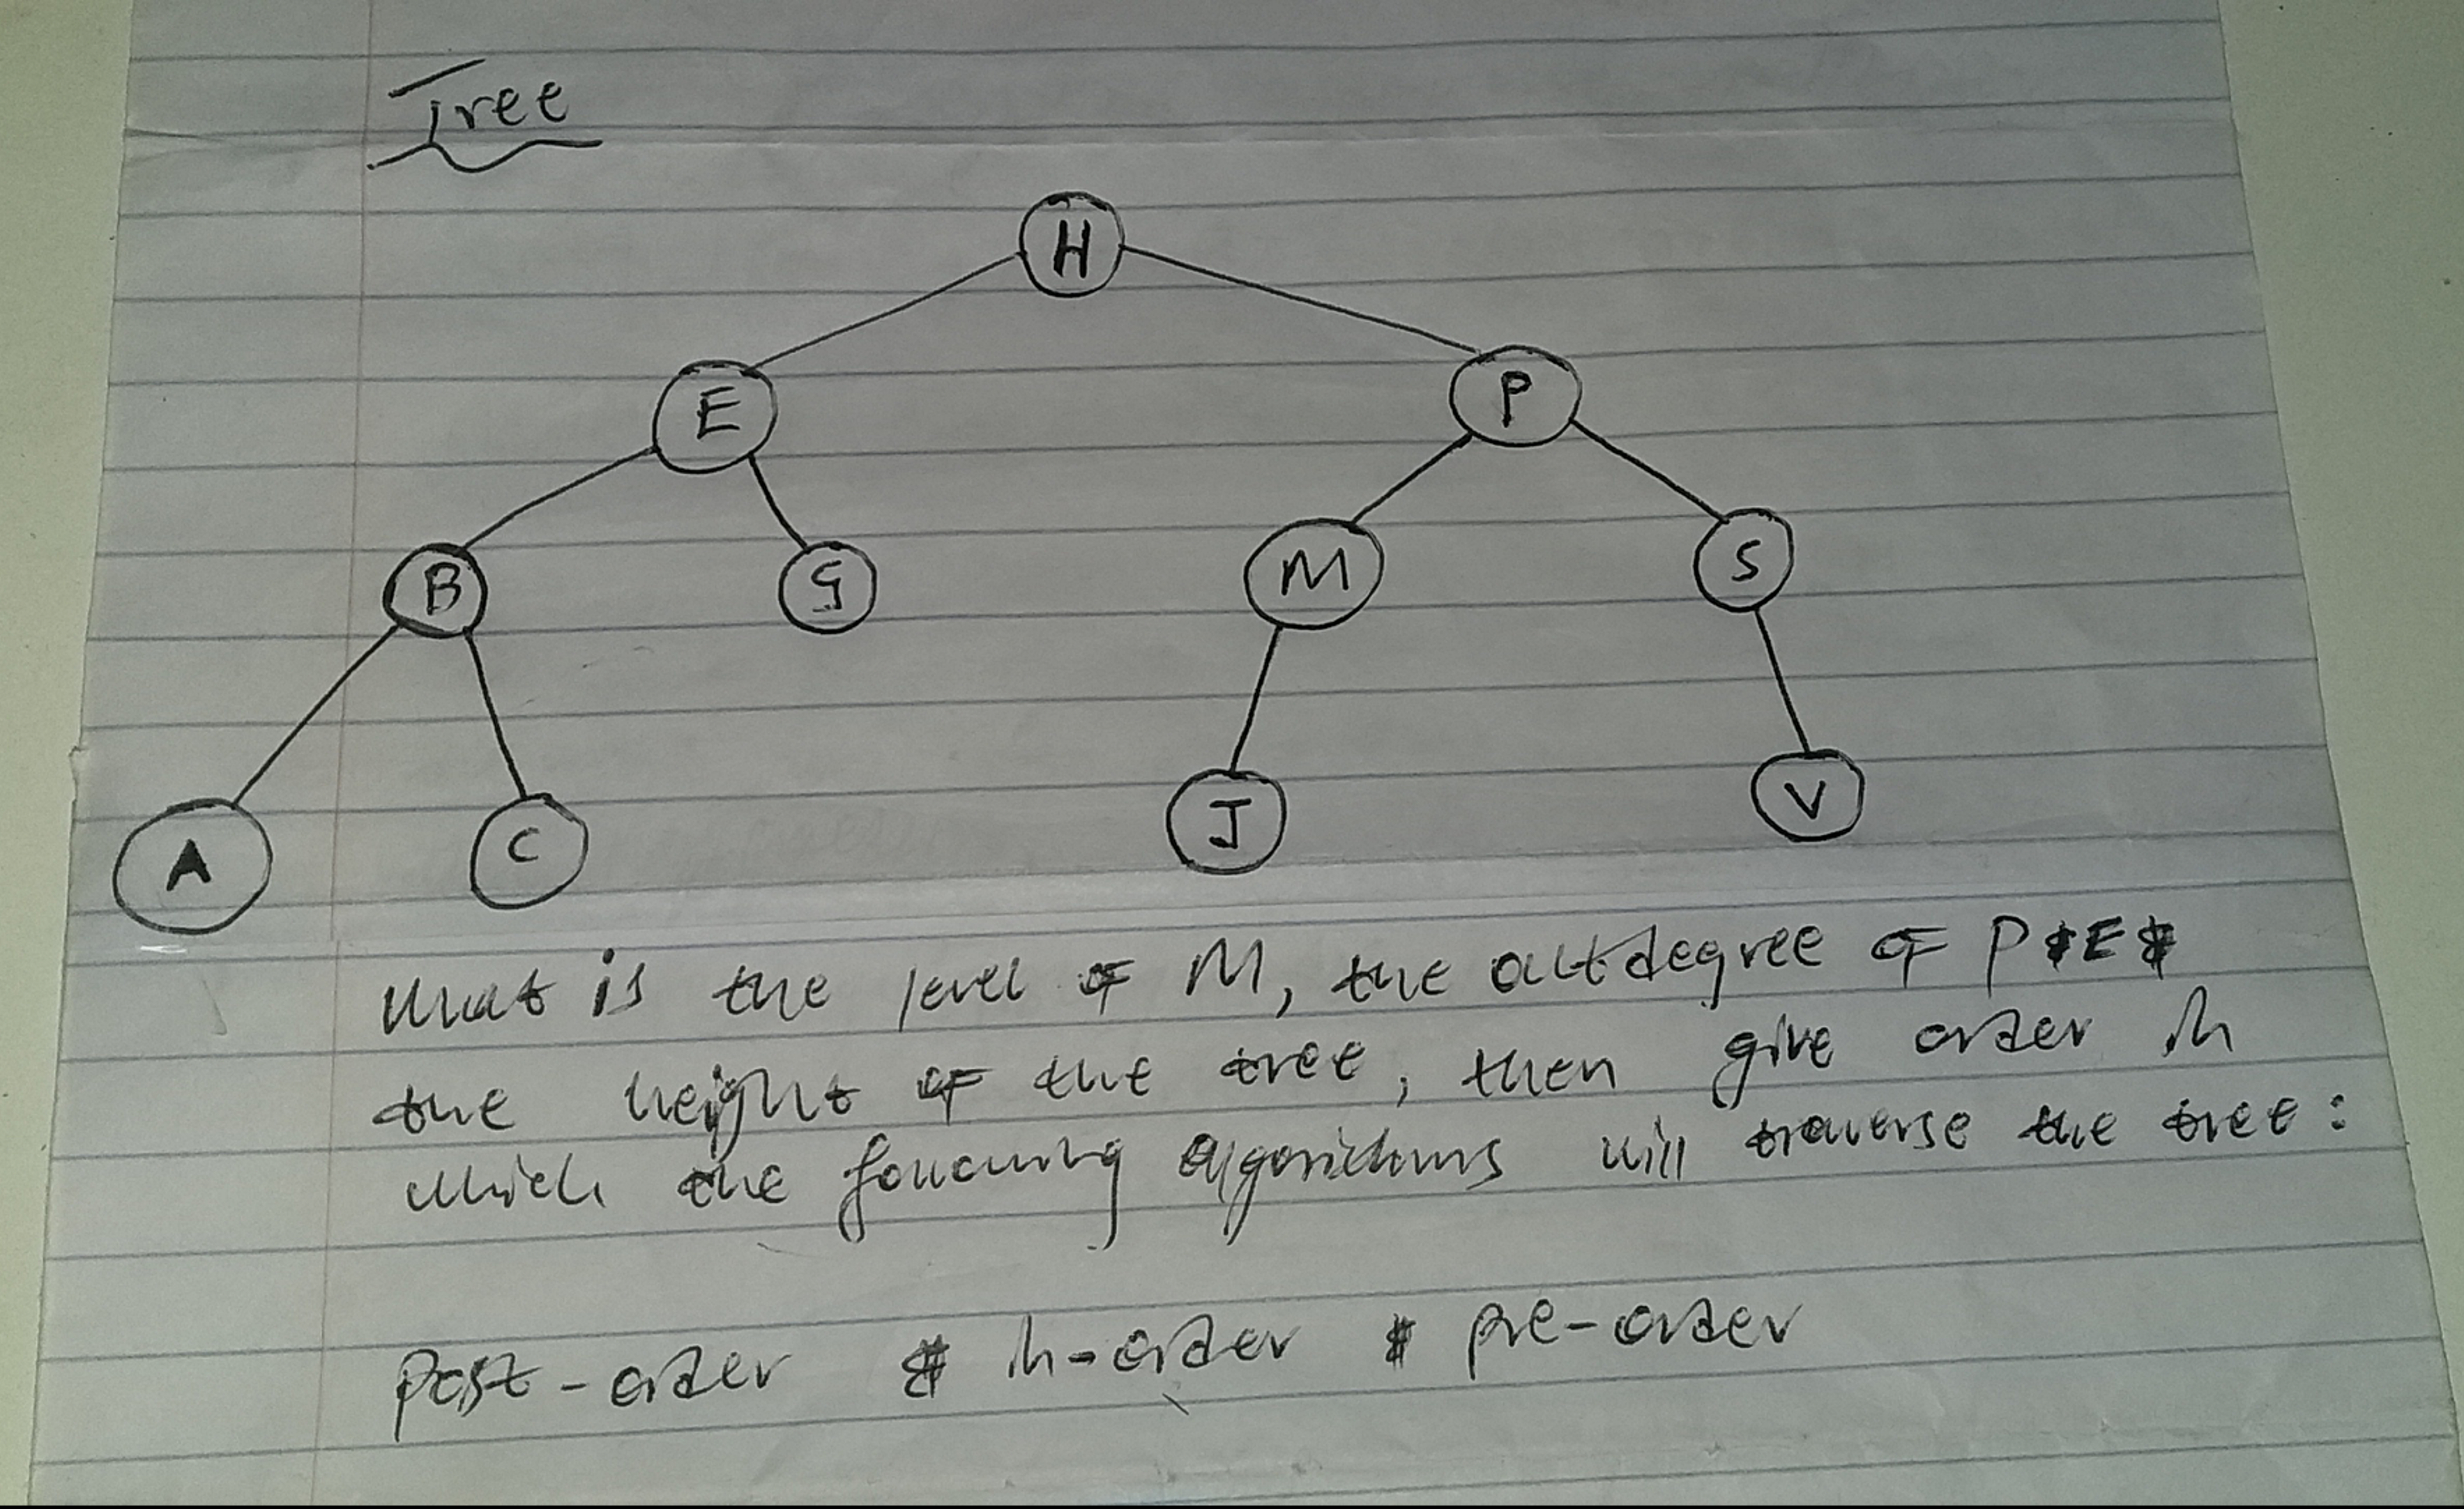 Tree
H
E P
B G M S
A C J V
What is the level of M, the outdegree of P & E &
the height of the tree, then give order in
which the following algorithms will traverse the tree:
post-order & in-order & pre-order